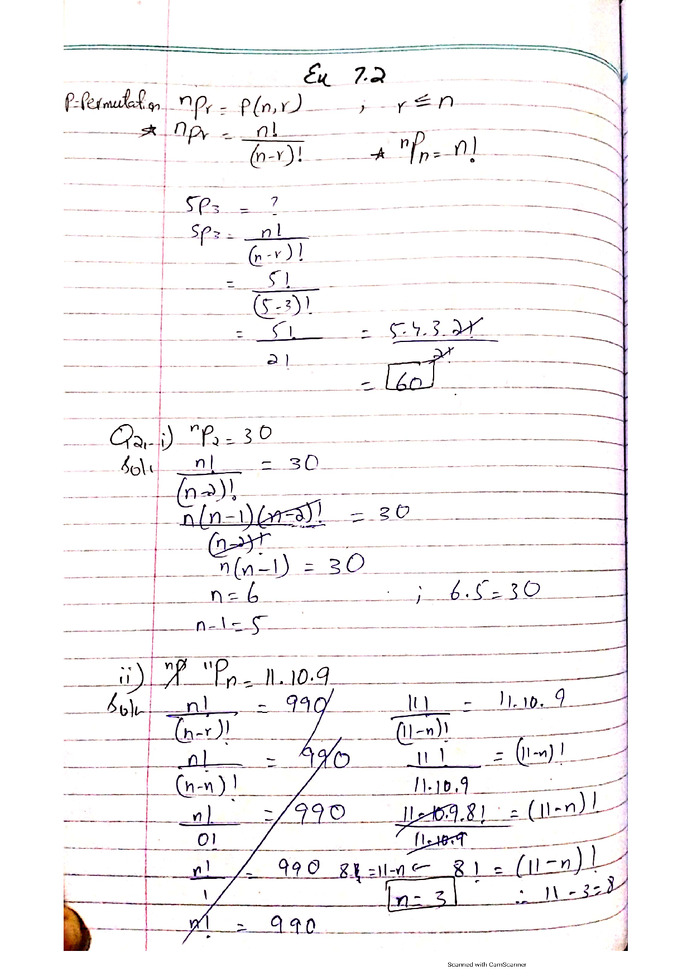 Ex 7.2
P-Permutation nPr = P(n,r) ; r ≤ n
* nPr = n!/(n-r)! * ⁿPn = n!
5P3 = ?
5P3 = n!/(n-r)!
= 5!/(5-3)!
= 5!/2! = 5.4.3.2!/2!
= 60
Q2,-i) ⁿP2 = 30
Sol: n!/(n-2)! = 30
n(n-1)(n-2)!/(n-2)! = 30
n(n-1) = 30
n = 6 ; 6.5 = 30
n-1 = 5
ii) ⁿP ¹¹Pn = 11.10.9
Sol: n!/(n-r)! = 990
n!/(n-n)! = 990
n!/0! = 990
n!/1 = 990
n! = 990
11!/(11-n)! = 11.10.9
11!/11.10.9 = (11-n)!
11.10.9.8!/11.10.9 = (11-n)!
8! = 11-n ← 8! = (11-n)!
n = 3 ∴ 11-3=8
Scanned with CamScanner